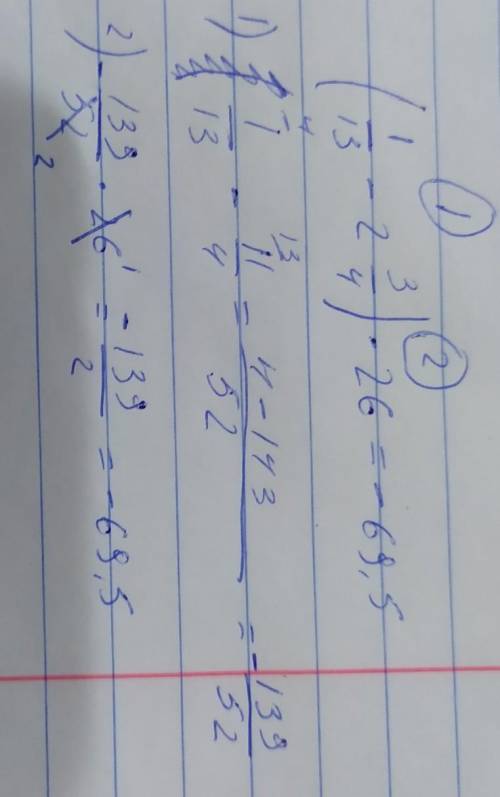 ① ②
(1/13 - 2 3/4) · 26 = -69,5
1) 1/13 - 11/4 = (4 - 143)/52 = -139/52
2) -139/52 · 26 = -139/2 = -69,5